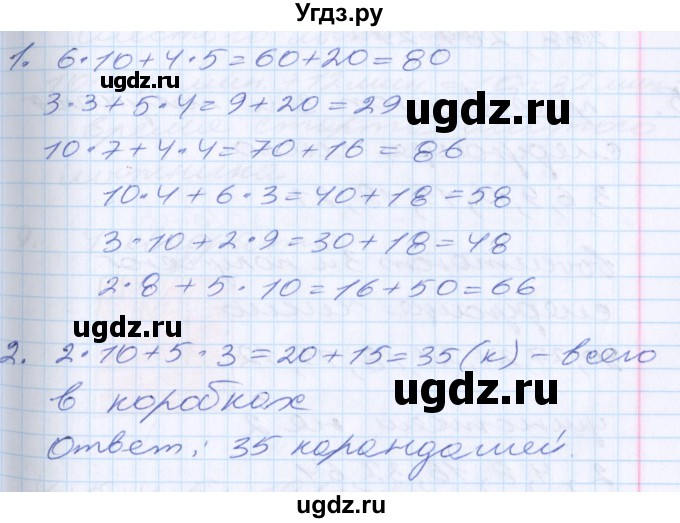 Угдз.ру
1. 6·10+4·5=60+20=80
ugdz.ru
3·3+5·4=9+20=29
ugdz.ru
10·7+4·4=70+16=86
10·4+6·3=40+18=58
3·10+2·9=30+18=48
2·8+5·10=16+50=66
ugdz.ru
2. 2·10+5·3=20+15=35(к) - всего
ugdz.ru
в коробках
Ответ: 35 карандашей.
ugdz.ru
ugdz.ru